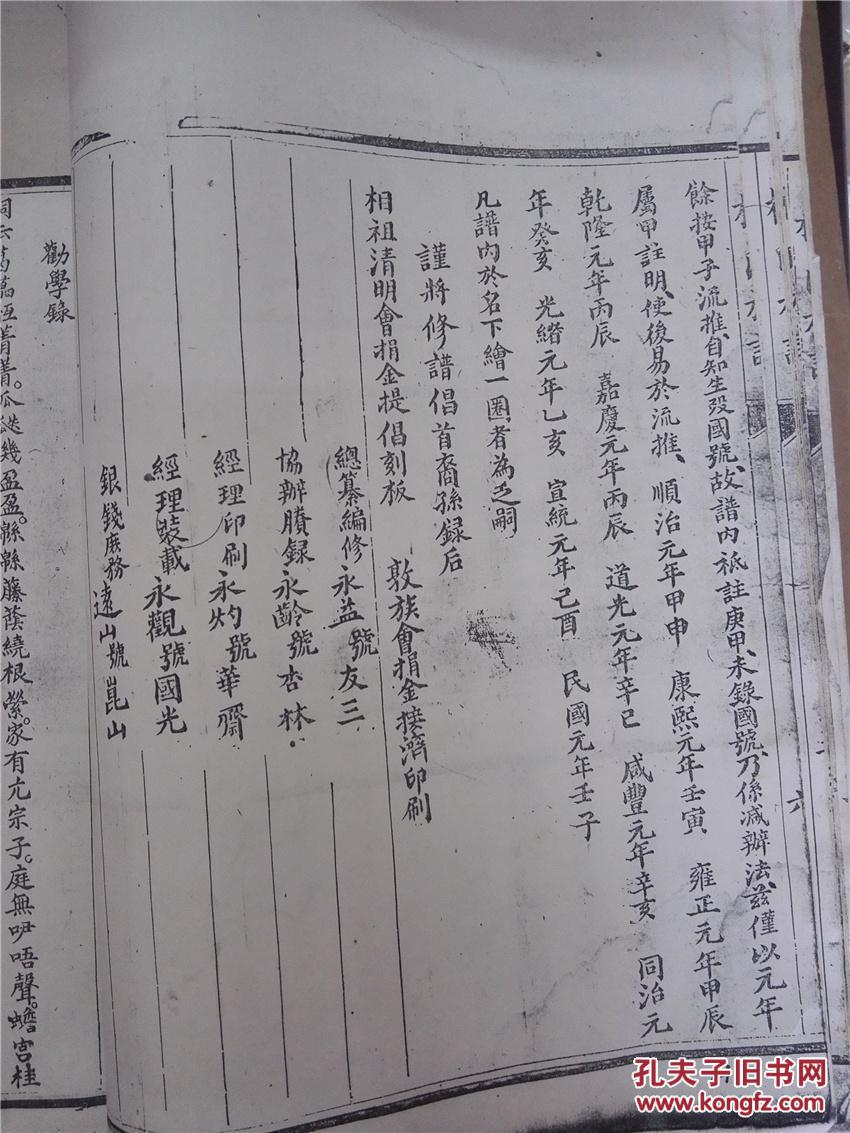 餘按甲子流推、自知生殁國號、故譜内祗註庚甲、未錄國號、乃係減辦法、兹僅以元年
屬甲註明、使後易於流推、順治元年甲申 康熙元年壬寅 雍正元年甲辰
乾隆元年丙辰 嘉慶元年丙辰 道光元年辛巳 咸豐元年辛亥 同治元
年癸亥 光緒元年乙亥 宣統元年己酉 民國元年壬子
凡譜内於名下繪一圈者為乏嗣
謹將修譜倡首裔孫録后
相祖清明會捐金提倡刻板 敦族會捐金接濟印刷
總纂編修永益號友三
協辦賸録永齡號杏林
經理印刷永灼號華齋
經理裝載永觀號國光
銀錢庶務遠山號崑山
勸學錄
菁菁。瓜瓞幾盈盈。緜緜藤蔭繞根縈。家有亢宗子。庭無咿唔聲。蟾宫桂
六
孔夫子旧书网
www.kongfz.com